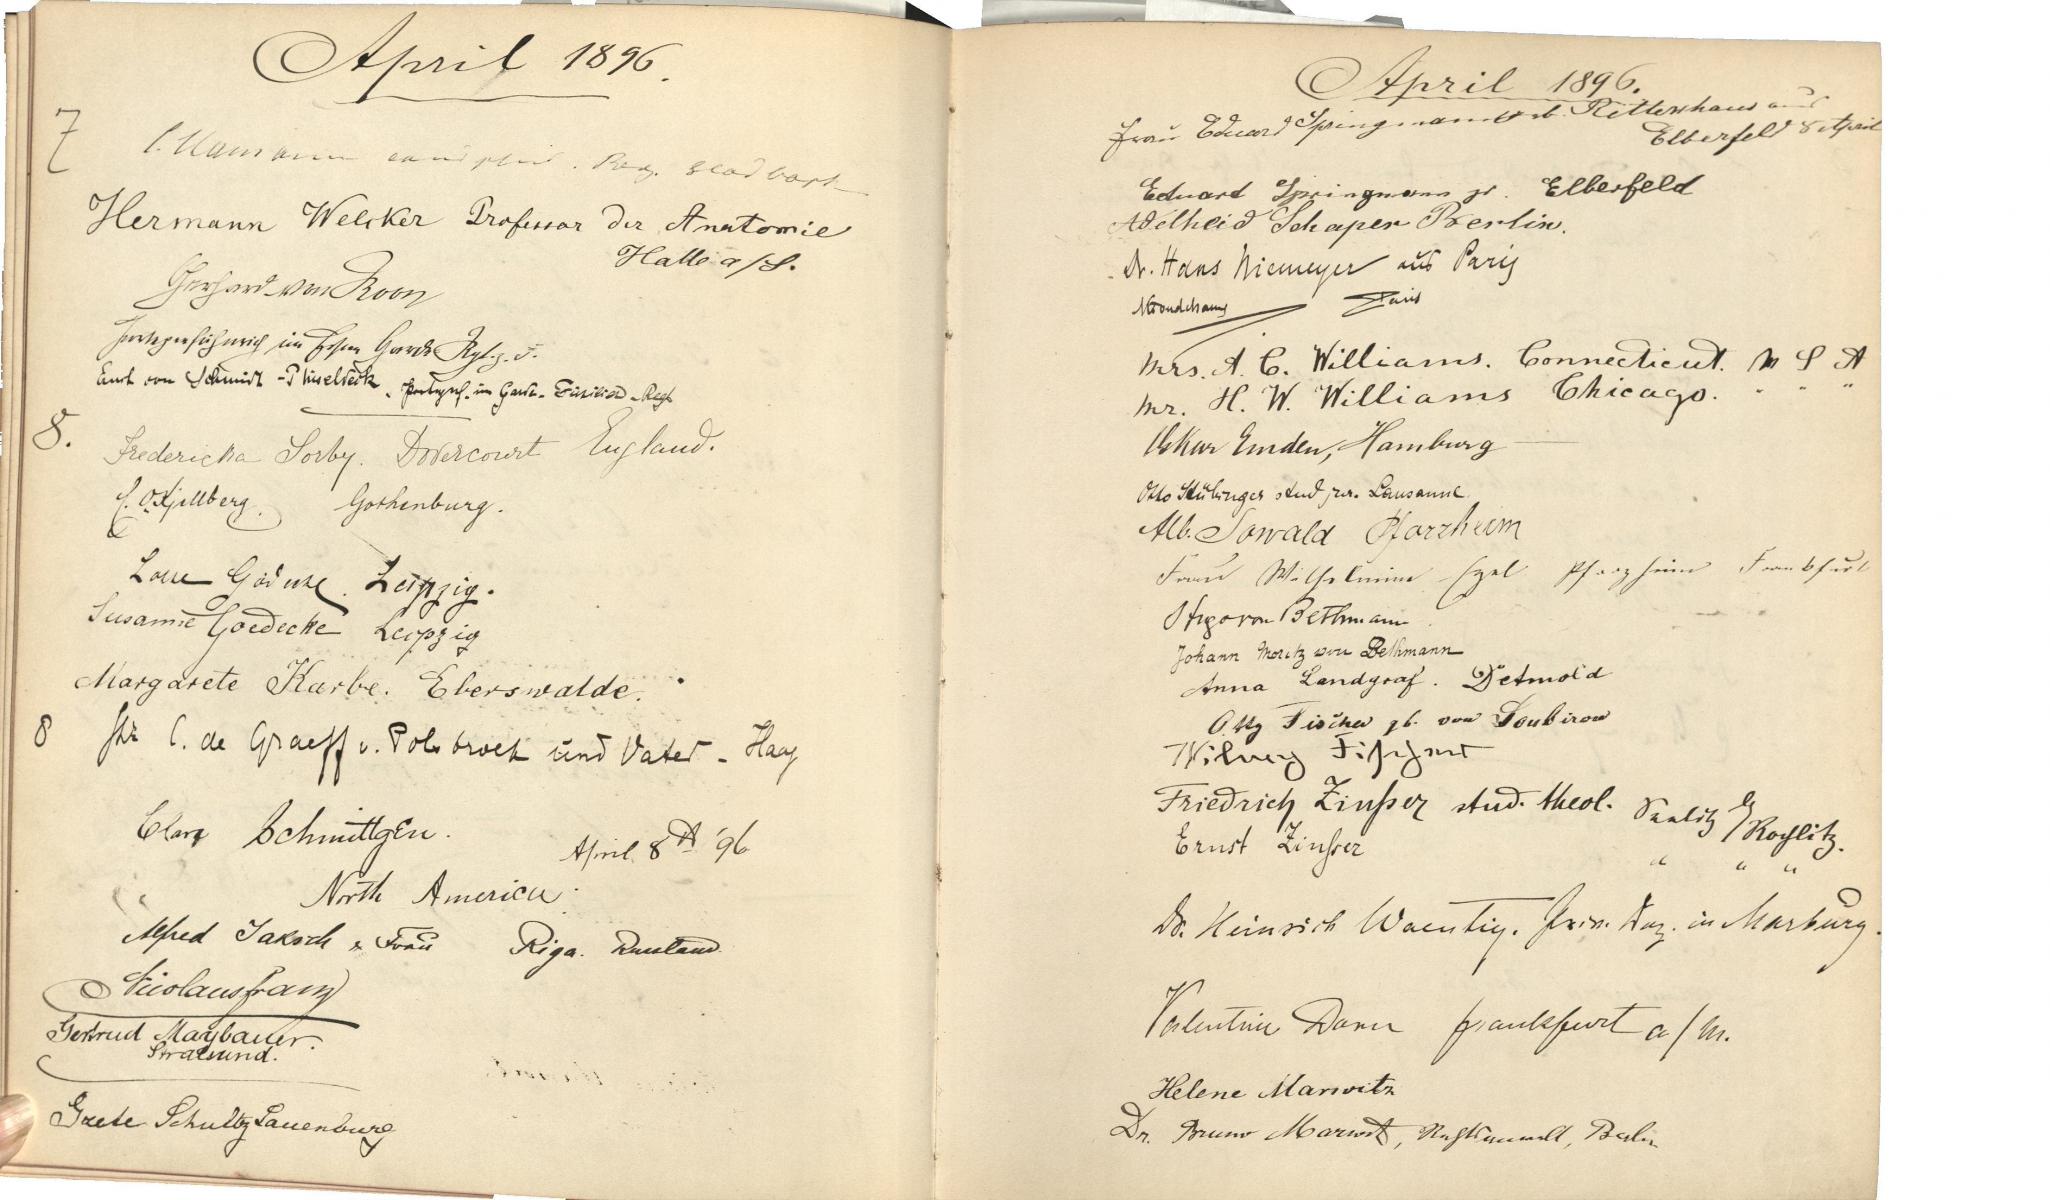 April 1896.
7
cand phil.
Hermann Welcker Professor der Anatomie
Halle a/S.
Gerhard von Roon
im Garde Rgt. z. F.
von Schmidt - im Garde-Füsilier-Regt
8.
Fredericka Sorby. Dovercourt England.
Kjellberg. Gothenburg.
Leipzig.
Susanne Goedecke Leipzig
Margarete Karbe. Eberswalde.
8 C. de Graeff v. Polsbroek und Vater - Haag
Clara Schmittgen.
April 8th '96
North America
Alfred Jaksch & Frau Riga. Russland
Nicolaus Franz
Gertrud Maybauer.
Stralsund.
Grete Schultz Lauenburg
April 1896.
Frau Eduard Springmann geb. Rittershaus aus
Elberfeld 8 April
Eduard Springmann jr. Elberfeld
Adelheid Schaper Berlin.
Dr. Hans Niemeyer aus Paris
Paris
Mrs. A. C. Williams. Connecticut. U S A
Mr. H. W. Williams Chicago. " " "
Oskar Emden, Hamburg
Otto Stübinger stud jur. Lausanne
Alb. Sowald Pforzheim
Frau Wilhelmine Pforzheim Frankfurt
Hugo von Bethmann
Johann Moritz von Bethmann
Anna Landgraf. Detmold
Fischer gb. von Soubiron
Friedrich Zinßer stud. theol. b/Rochlitz.
Ernst Zinßer " " "
Dr. Heinrich Waentig. Priv. Doz. in Marburg.
Valentin Dann Frankfurt a/M.
Helene Marwitz
Dr. Bruno Marwitz, Rechtsanwalt, Berlin